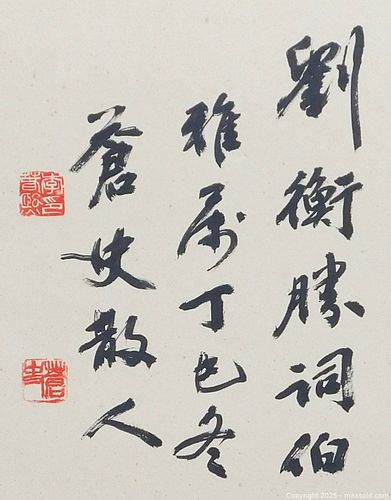 劉衡勝詞伯
雅属丁巳冬
蒼史散人
蒼史
Copyright 2025 - maxsold.com